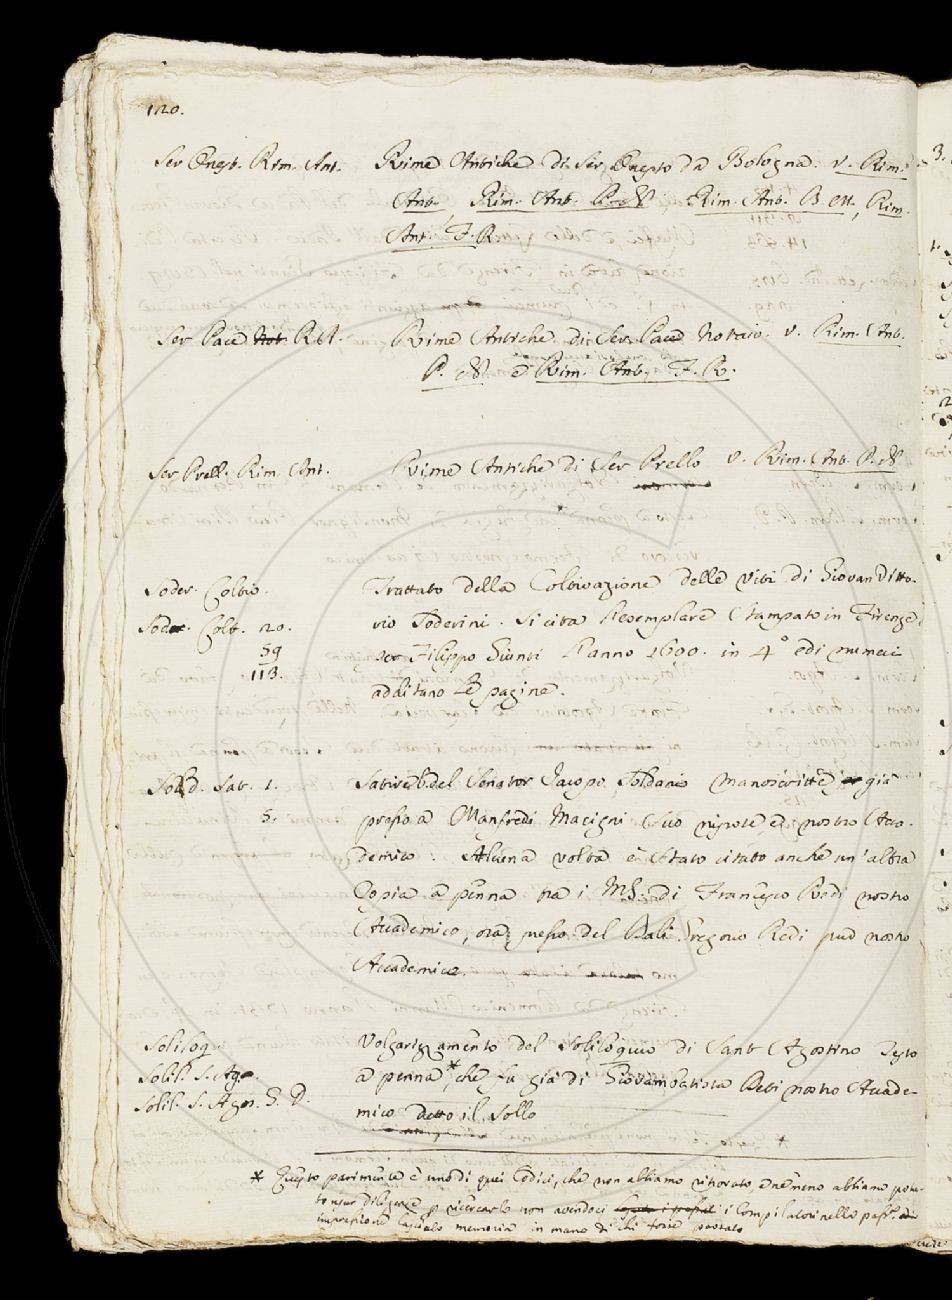 120.
Ser Onest. Rim. Ant. Rime Antiche di Ser Onesto da Bologna. v. Rim.
Ant. Rim. Ant. P. N. Rim. Ant. B. M., Rim.
Ant. F. R.
Ser Pace Not. R. A. Rime Antiche di Ser Pace Notaio. v. Rim. Ant.
P. N. e Rim. Ant. F. R.
Ser Prell. Rim. Ant. Rime Antiche di Ser Prello v. Rim. Ant. P. N.
Soder. Coltiv. Trattato della Coltivazione delle Viti di Giovan Vitto-
Sod. Colt. 20. rio Soderini. Si cita l'esemplare Stampato in Firenze
59 per Filippo Giunti l'anno 1600. in 4° ed i numeri
113. additano le pagine.
Sold. Sat. 1. Satire del Senator Jacopo Soldani manoscritte, già
5. presso a Manfredi Macigni Suo nipote, e nostro Acca-
demico. Alcuna volta è Stato citato anche un'altra
Copia a penna tra i MS. di Francesco Redi nostro
Accademico, ora presso del Balì Gregorio Redi pur nostro
Accademico.
Soliloq. Volgarizzamento del Soliloquio di Sant' Agostino Testo
Solil. S. Ag. a penna*, che fu già di Giovambatista Deti nostro Accade-
Solil. S. Agos. G. D. mico detto il Sollo
* Questo parimente è uno di quei Codici, che non abbiamo ritrovato e nemmeno abbiamo potu-
to usar diligenze p ricercarlo non avendoci i Compilatori nella pass.
impressione lasciato memoria in mano di chi fosse passato